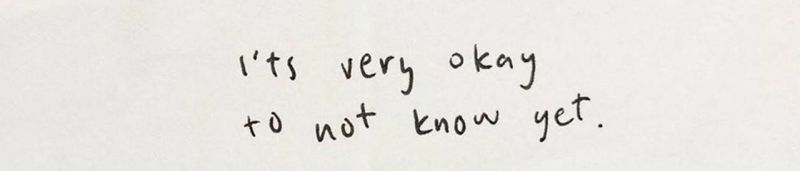 i'ts very okay
to not know yet.